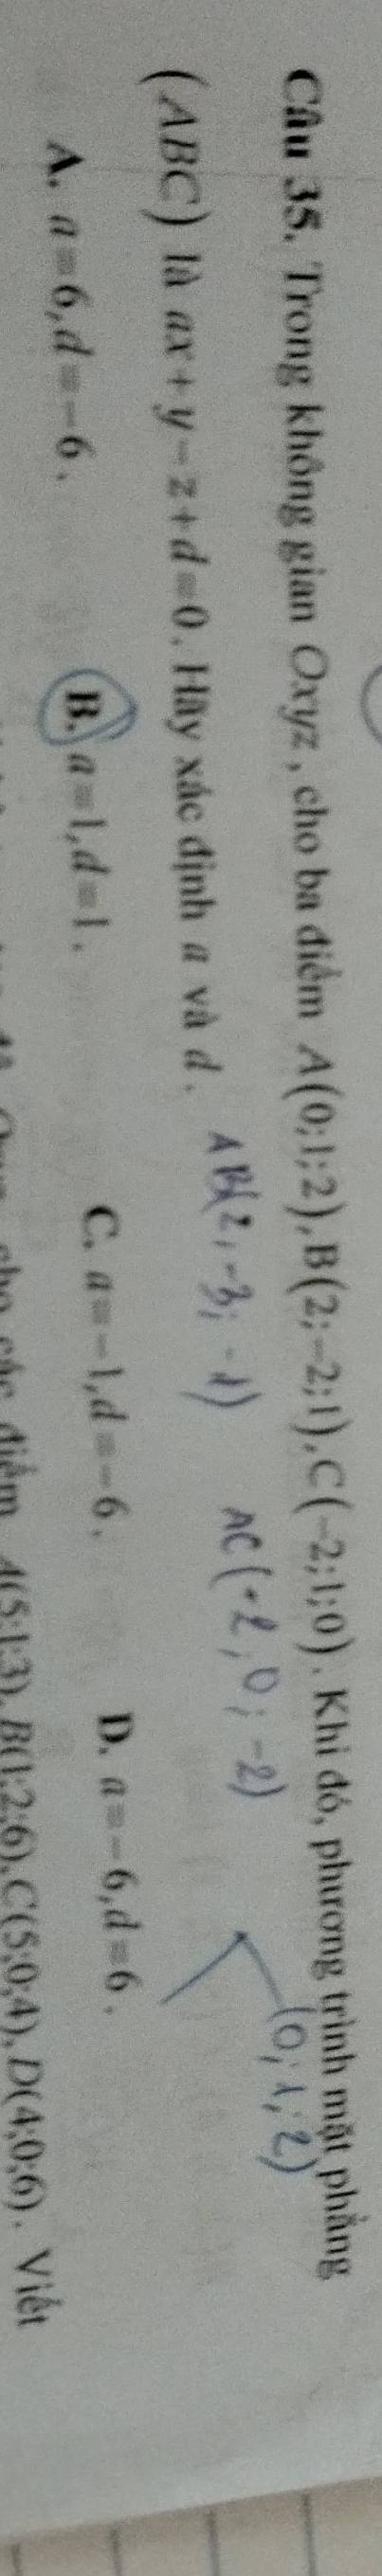 Câu 35. Trong không gian Oxyz, cho ba điểm A(0;1;2), B(2;-2;1), C(-2;1;0). Khi đó, phương trình mặt phẳng
(ABC) là ax+y-z+d=0. Hãy xác định a và d.
AB(2,-3;-1) AC(-2;0;-2) (0;1;2)
A. a=6,d=-6. B. a=1,d=1. C. a=-1,d=-6. D. a=-6,d=6.
cho các điểm A(5;1;3), B(1;2;6), C(5;0;4), D(4;0;6). Viết